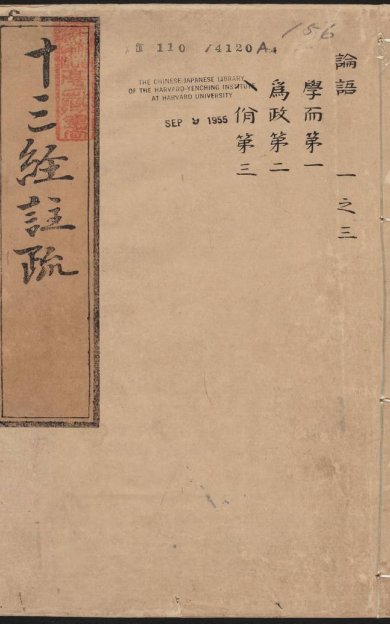 156
110 /4120 A
THE CHINESE-JAPANESE LIBRARY
OF THE HARVARD-YENCHING INSTITUTE
AT HARVARD UNIVERSITY
SEP 9 1955
論語 一之三
學而第一
爲政第二
八佾第三
十三經註疏